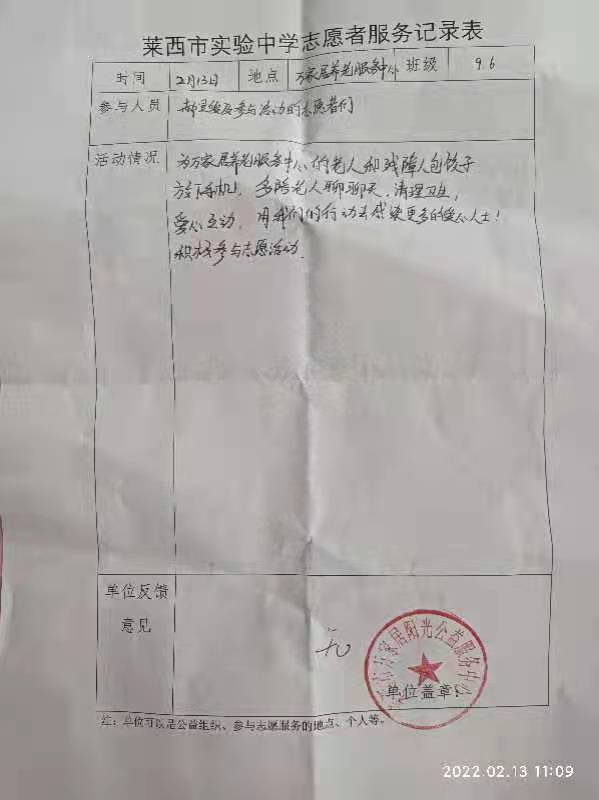 莱西市实验中学志愿者服务记录表
时间 2月13日 地点 万家居养老服务中心 班级 9.6
参与人员 及参与活动的志愿者们
活动情况 为万家居养老服务中心的老人和残障人包饺子
多陪老人聊聊天,清理卫生,
爱心互动,用我们的行动去感染更多的爱心人士!
积极参与志愿活动.
单位反馈
意见
无
万家居阳光公益服务中心
单位盖章:
注:单位可以是公益组织、参与志愿服务的地点、个人等。
2022.02.13 11:09